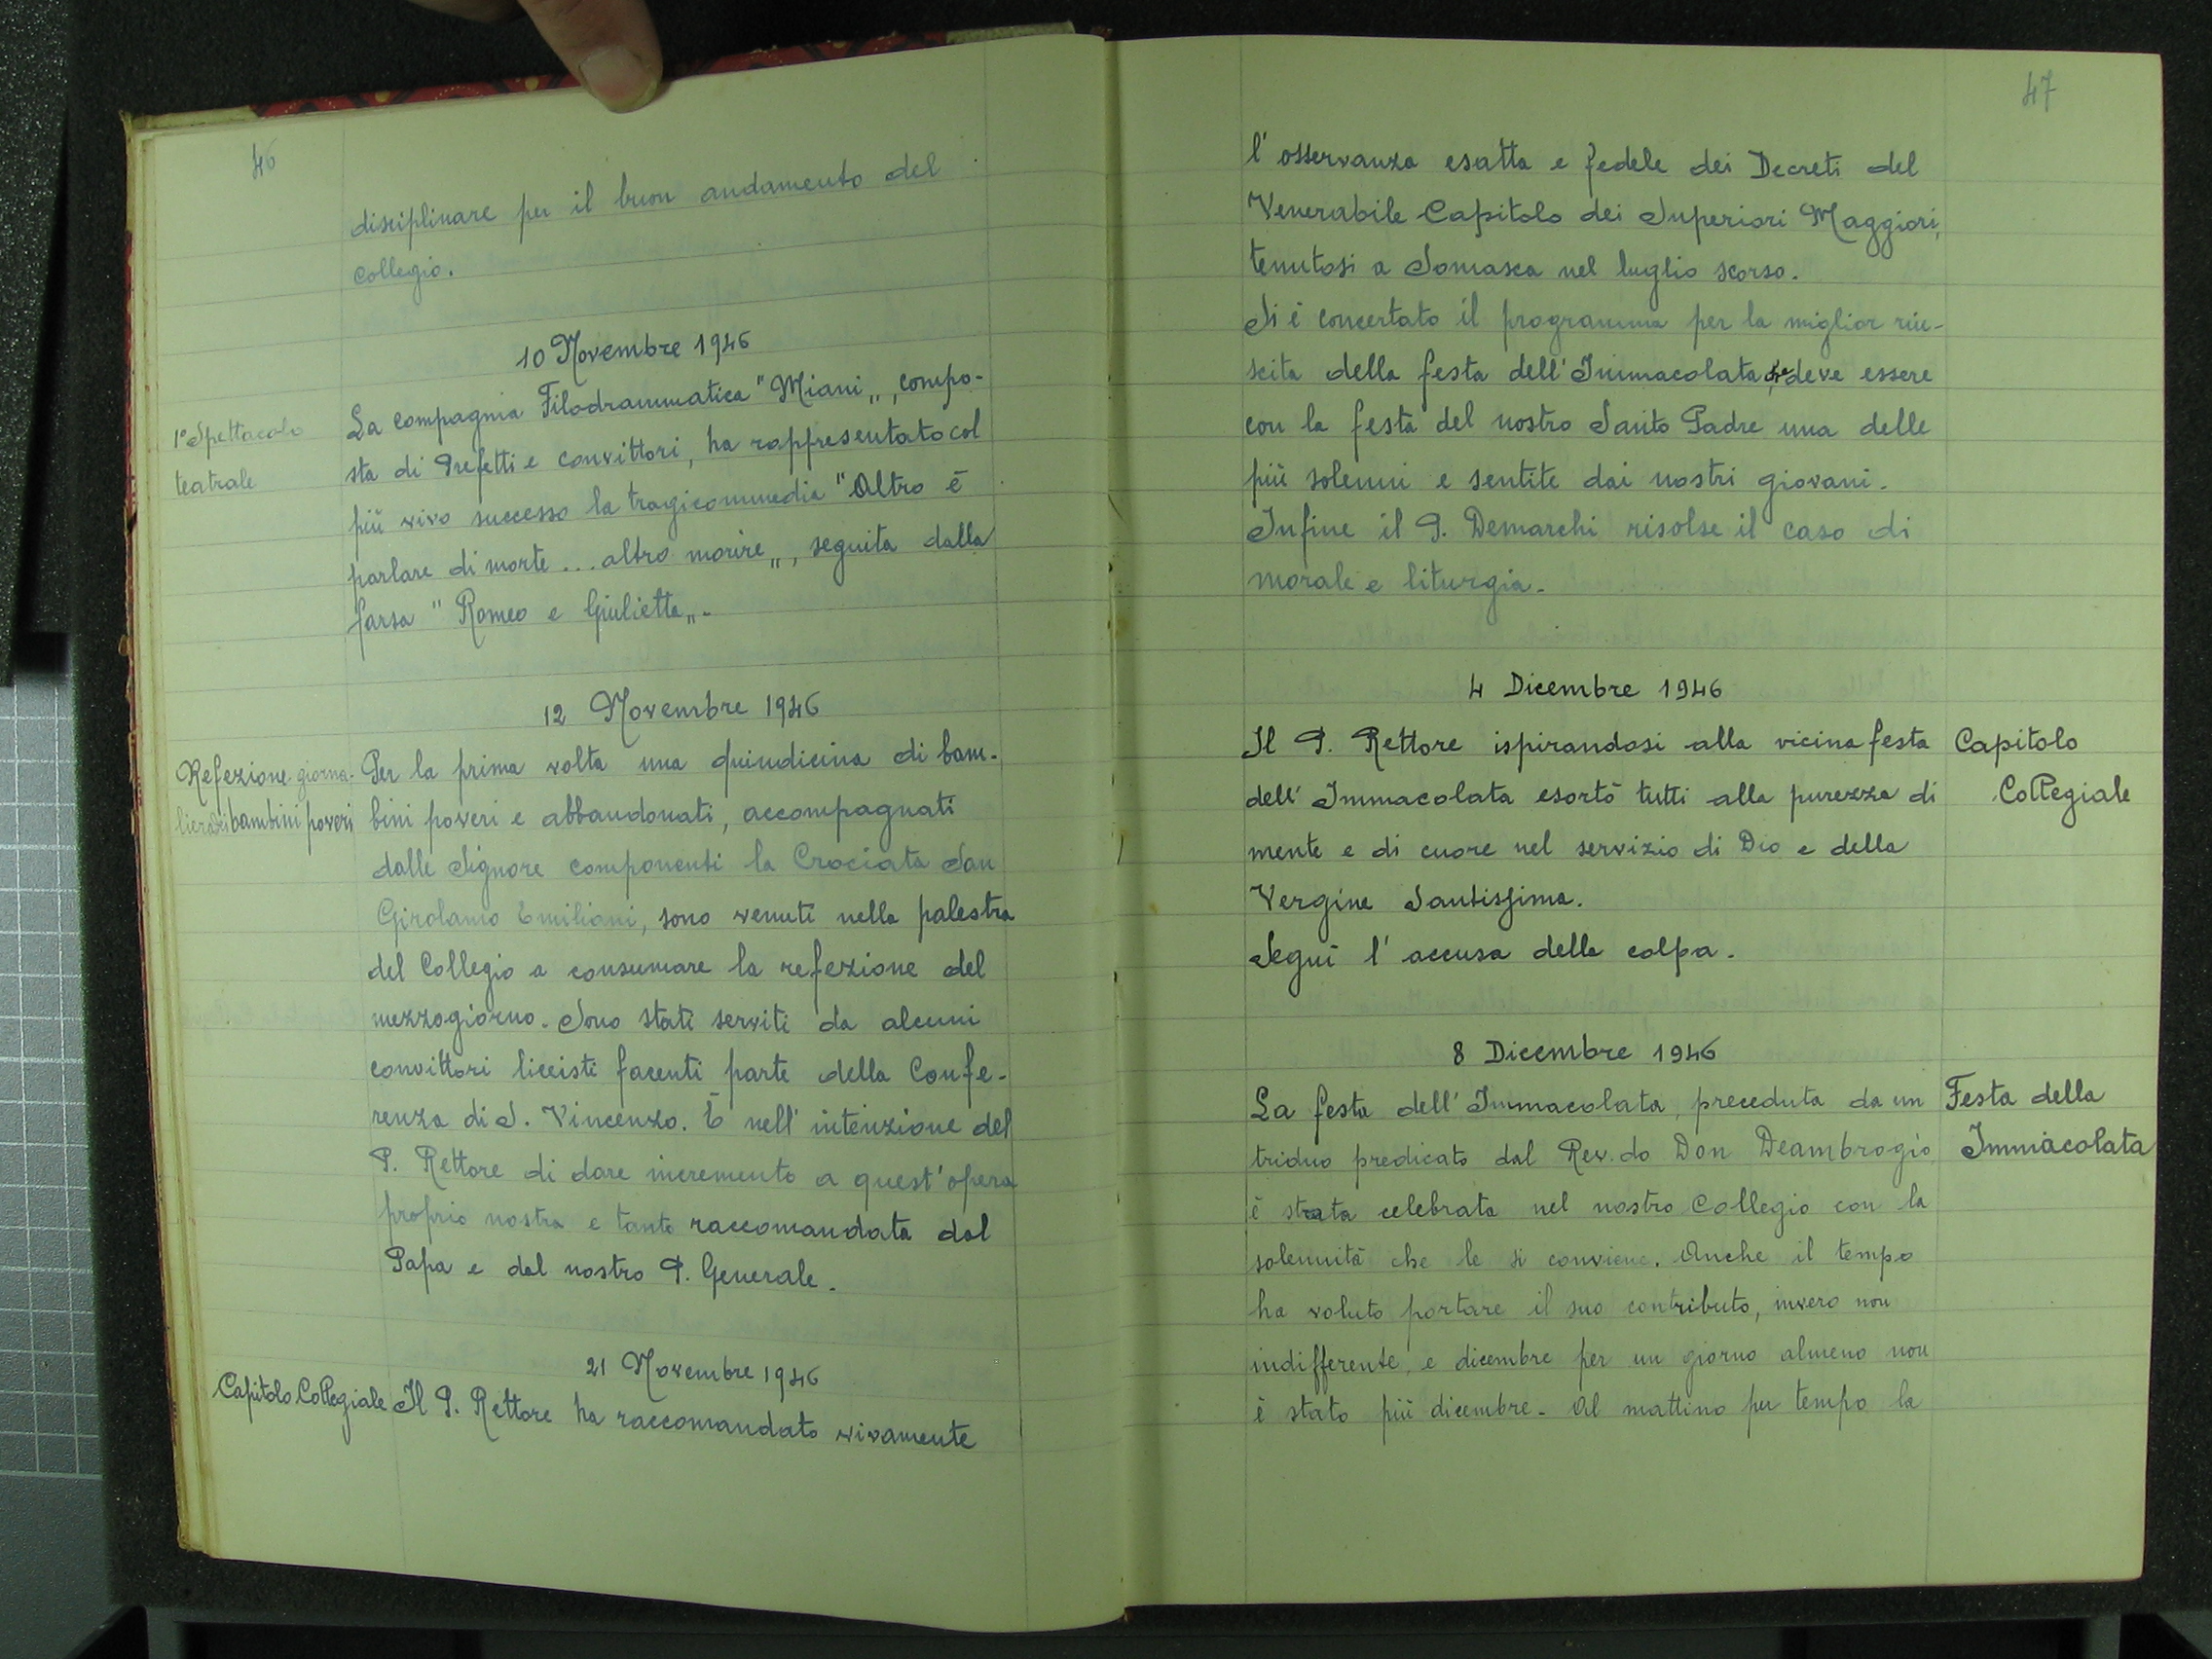 46
disciplinare per il buon andamento del
collegio.
10 Novembre 1946
1° Spettacolo
teatrale
La compagnia Filodrammatica "Miani„, compo-
sta di Prefetti e convittori, ha rappresentato col
più vivo successo la tragicommedia "Altro è
parlare di morte ... altro morire„, seguita dalla
farsa "Romeo e Giulietta„.
12 Novembre 1946
Refezione giorna-
liera di bambini poveri
Per la prima volta una quindicina di bam-
bini poveri e abbandonati, accompagnati
dalle Signore componenti la Crociata San
Girolamo Emiliani, sono venuti nella palestra
del Collegio a consumare la refezione del
mezzogiorno. Sono stati serviti da alcuni
convittori liceisti facenti parte della Confe-
renza di S. Vincenzo. È nell'intenzione del
P. Rettore di dare incremento a quest'opera
proprio nostra e tanto raccomandata dal
Papa e dal nostro P. Generale.
21 Novembre 1946
Capitolo Collegiale
Il P. Rettore ha raccomandato vivamente
47
l'osservanza esatta e fedele dei Decreti del
Venerabile Capitolo dei Superiori Maggiori,
tenutosi a Somasca nel luglio scorso.
Si è concertato il programma per la miglior riu-
scita della festa dell'Immacolata, che deve essere
con la festa del nostro Santo Padre una delle
più solenni e sentite dai nostri giovani.
Infine il P. Demarchi risolse il caso di
morale e liturgia.
4 Dicembre 1946
Capitolo
Collegiale
Il P. Rettore ispirandosi alla vicina festa
dell'Immacolata esortò tutti alla purezza di
mente e di cuore nel servizio di Dio e della
Vergine Santissima.
Seguì l'accusa della colpa.
8 Dicembre 1946
Festa della
Immacolata
La festa dell'Immacolata, preceduta da un
triduo predicato dal Rev.do Don Deambrogio
è stata celebrata nel nostro Collegio con la
solennità che le si conviene. Anche il tempo
ha voluto portare il suo contributo, invero non
indifferente, e dicembre per un giorno almeno non
è stato più dicembre. Al mattino per tempo la